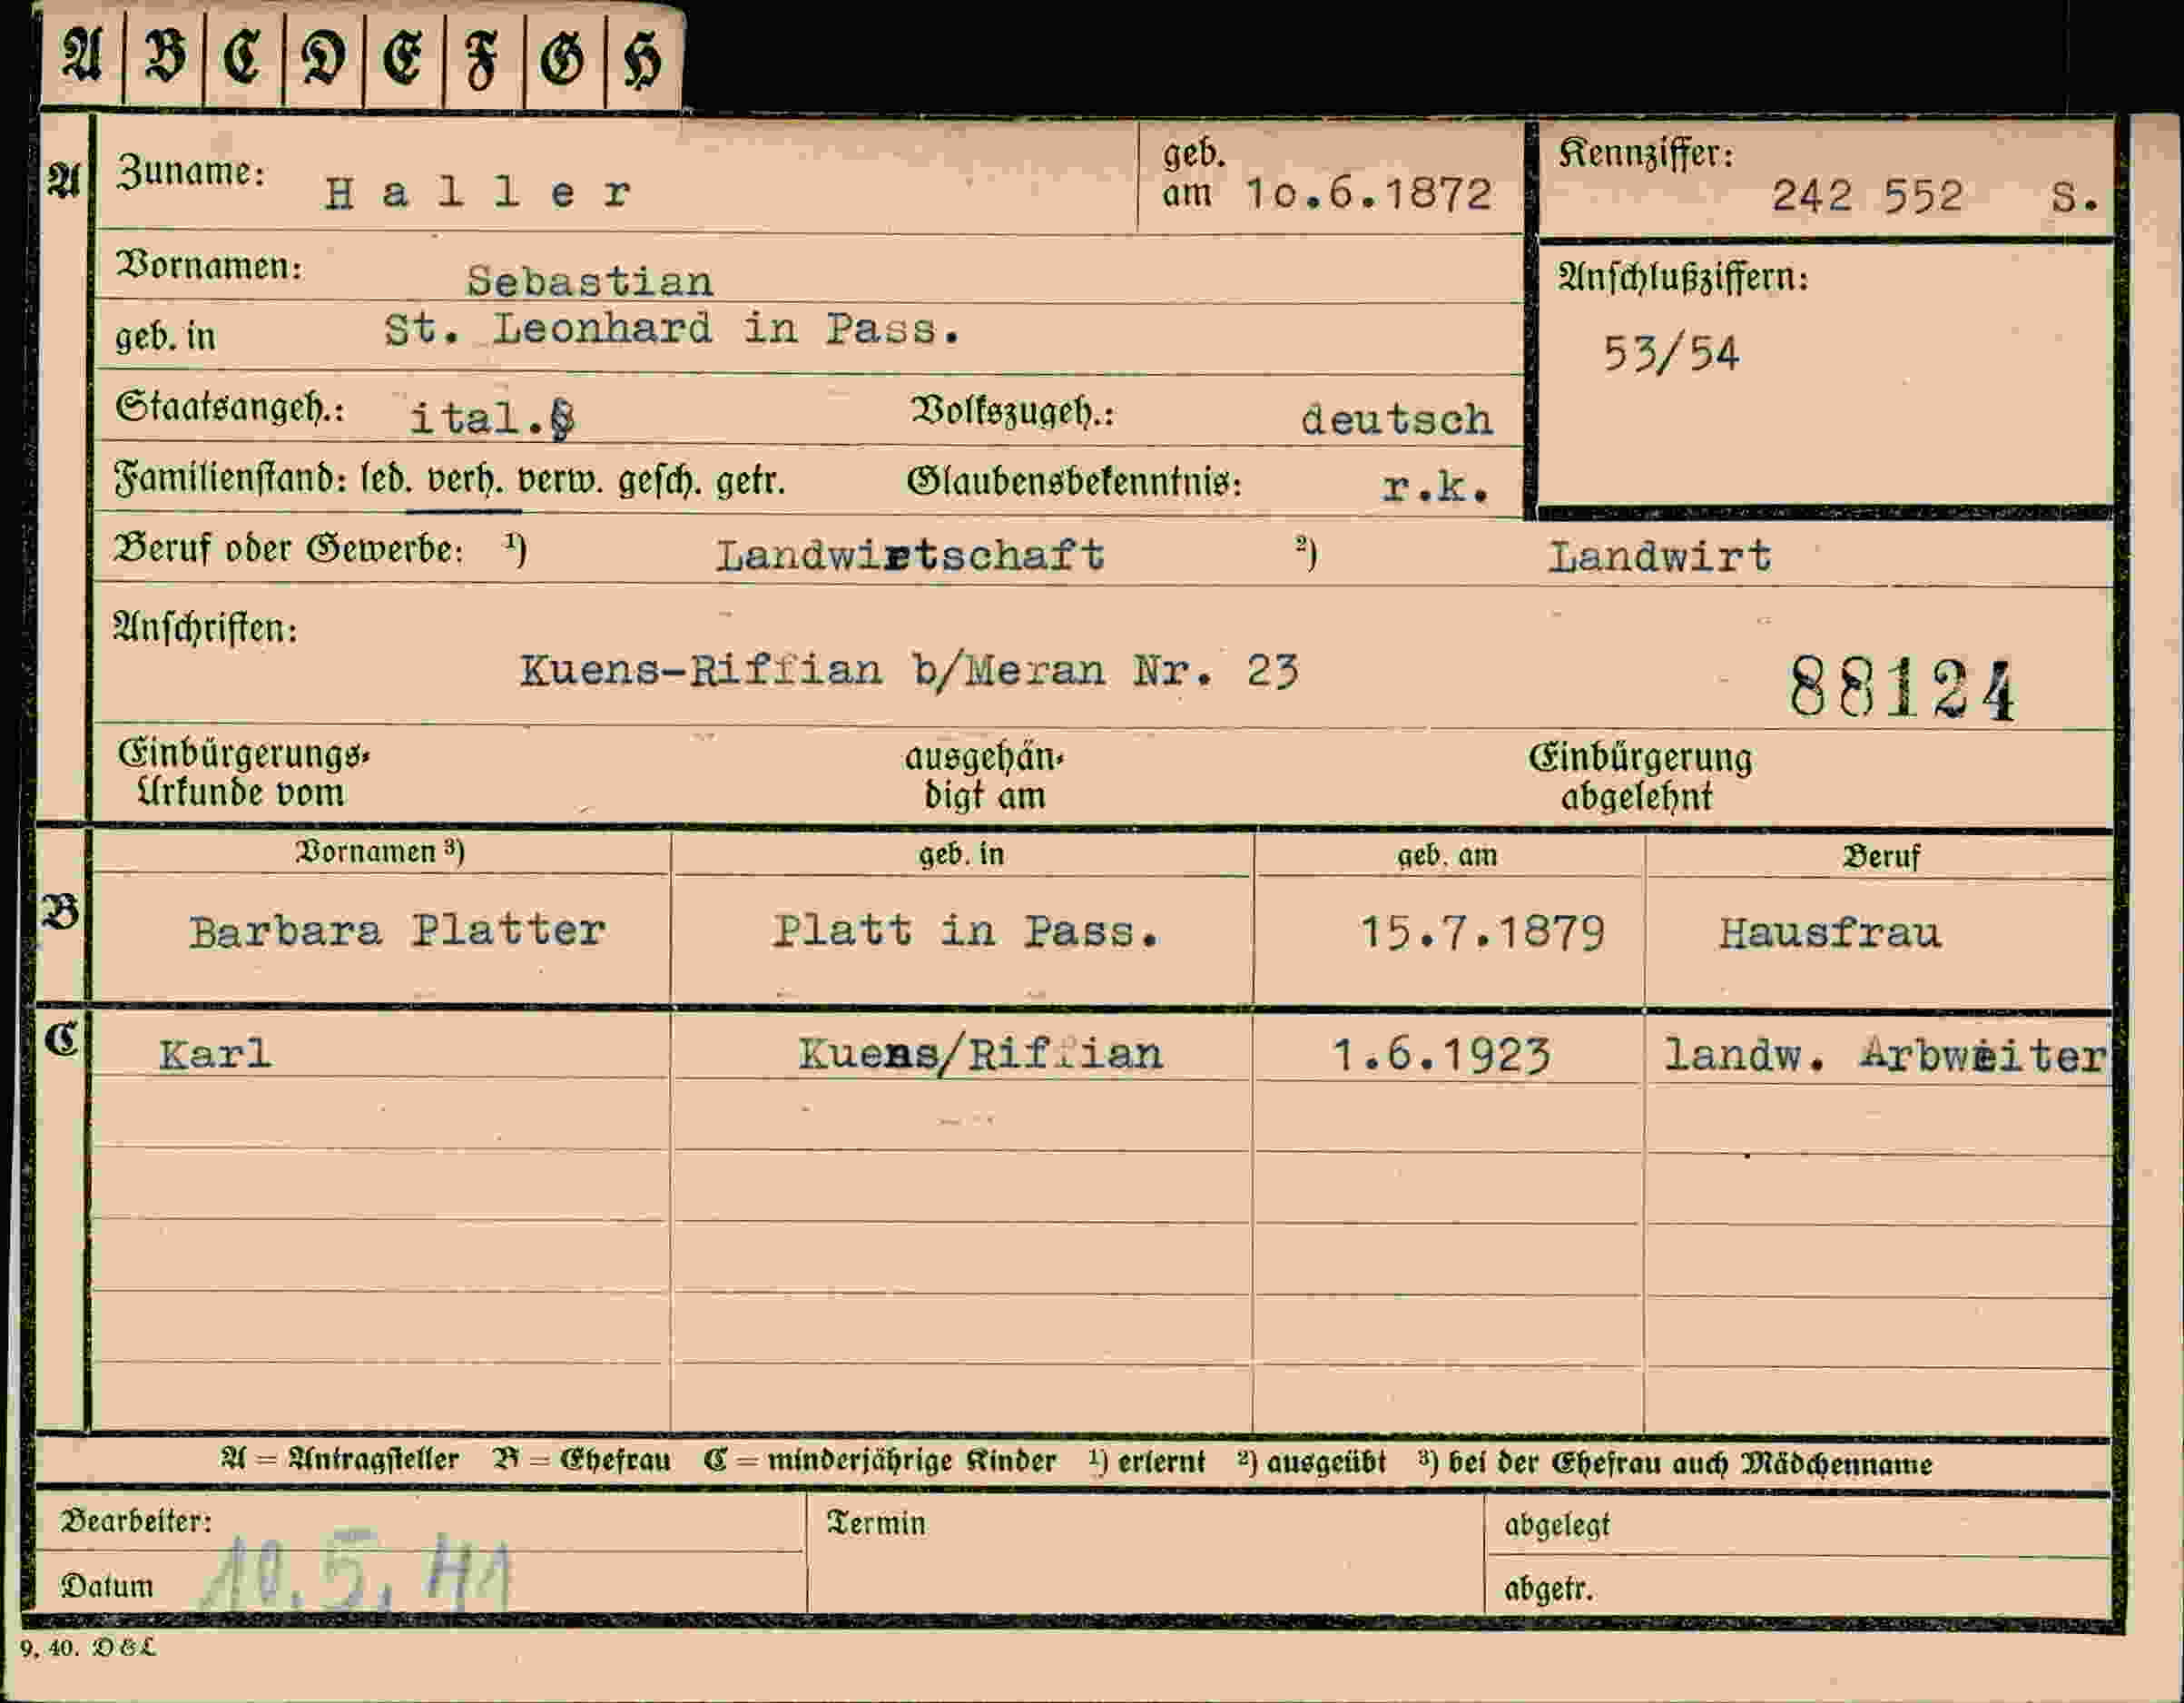 A B C D E F G H
A Zuname: Haller geb. am 10.6.1872 Kennziffer: 242 552 S.
Vornamen: Sebastian
geb. in St. Leonhard in Pass.
Anschlußziffern:
53/54
Staatsangeh.: ital. Volkszugeh.: deutsch
Familienstand: led. verh. verw. gesch. getr. Glaubensbekenntnis: r.k.
Beruf oder Gewerbe: ¹) Landwirtschaft ²) Landwirt
Anschriften:
Kuens-Riffian b/Meran Nr. 23 88124
Einbürgerungs- ausgehän- Einbürgerung
Urkunde vom digt am abgelehnt
Vornamen ³) geb. in geb. am Beruf
B Barbara Platter Platt in Pass. 15.7.1879 Hausfrau
C Karl Kuens/Riffian 1.6.1923 landw. Arbweiter
A = Antragsteller B = Ehefrau C = minderjährige Kinder ¹) erlernt ²) ausgeübt ³) bei der Ehefrau auch Mädchenname
Bearbeiter: Termin abgelegt
Datum 10.5.41 abgetr.
9. 40. D & L